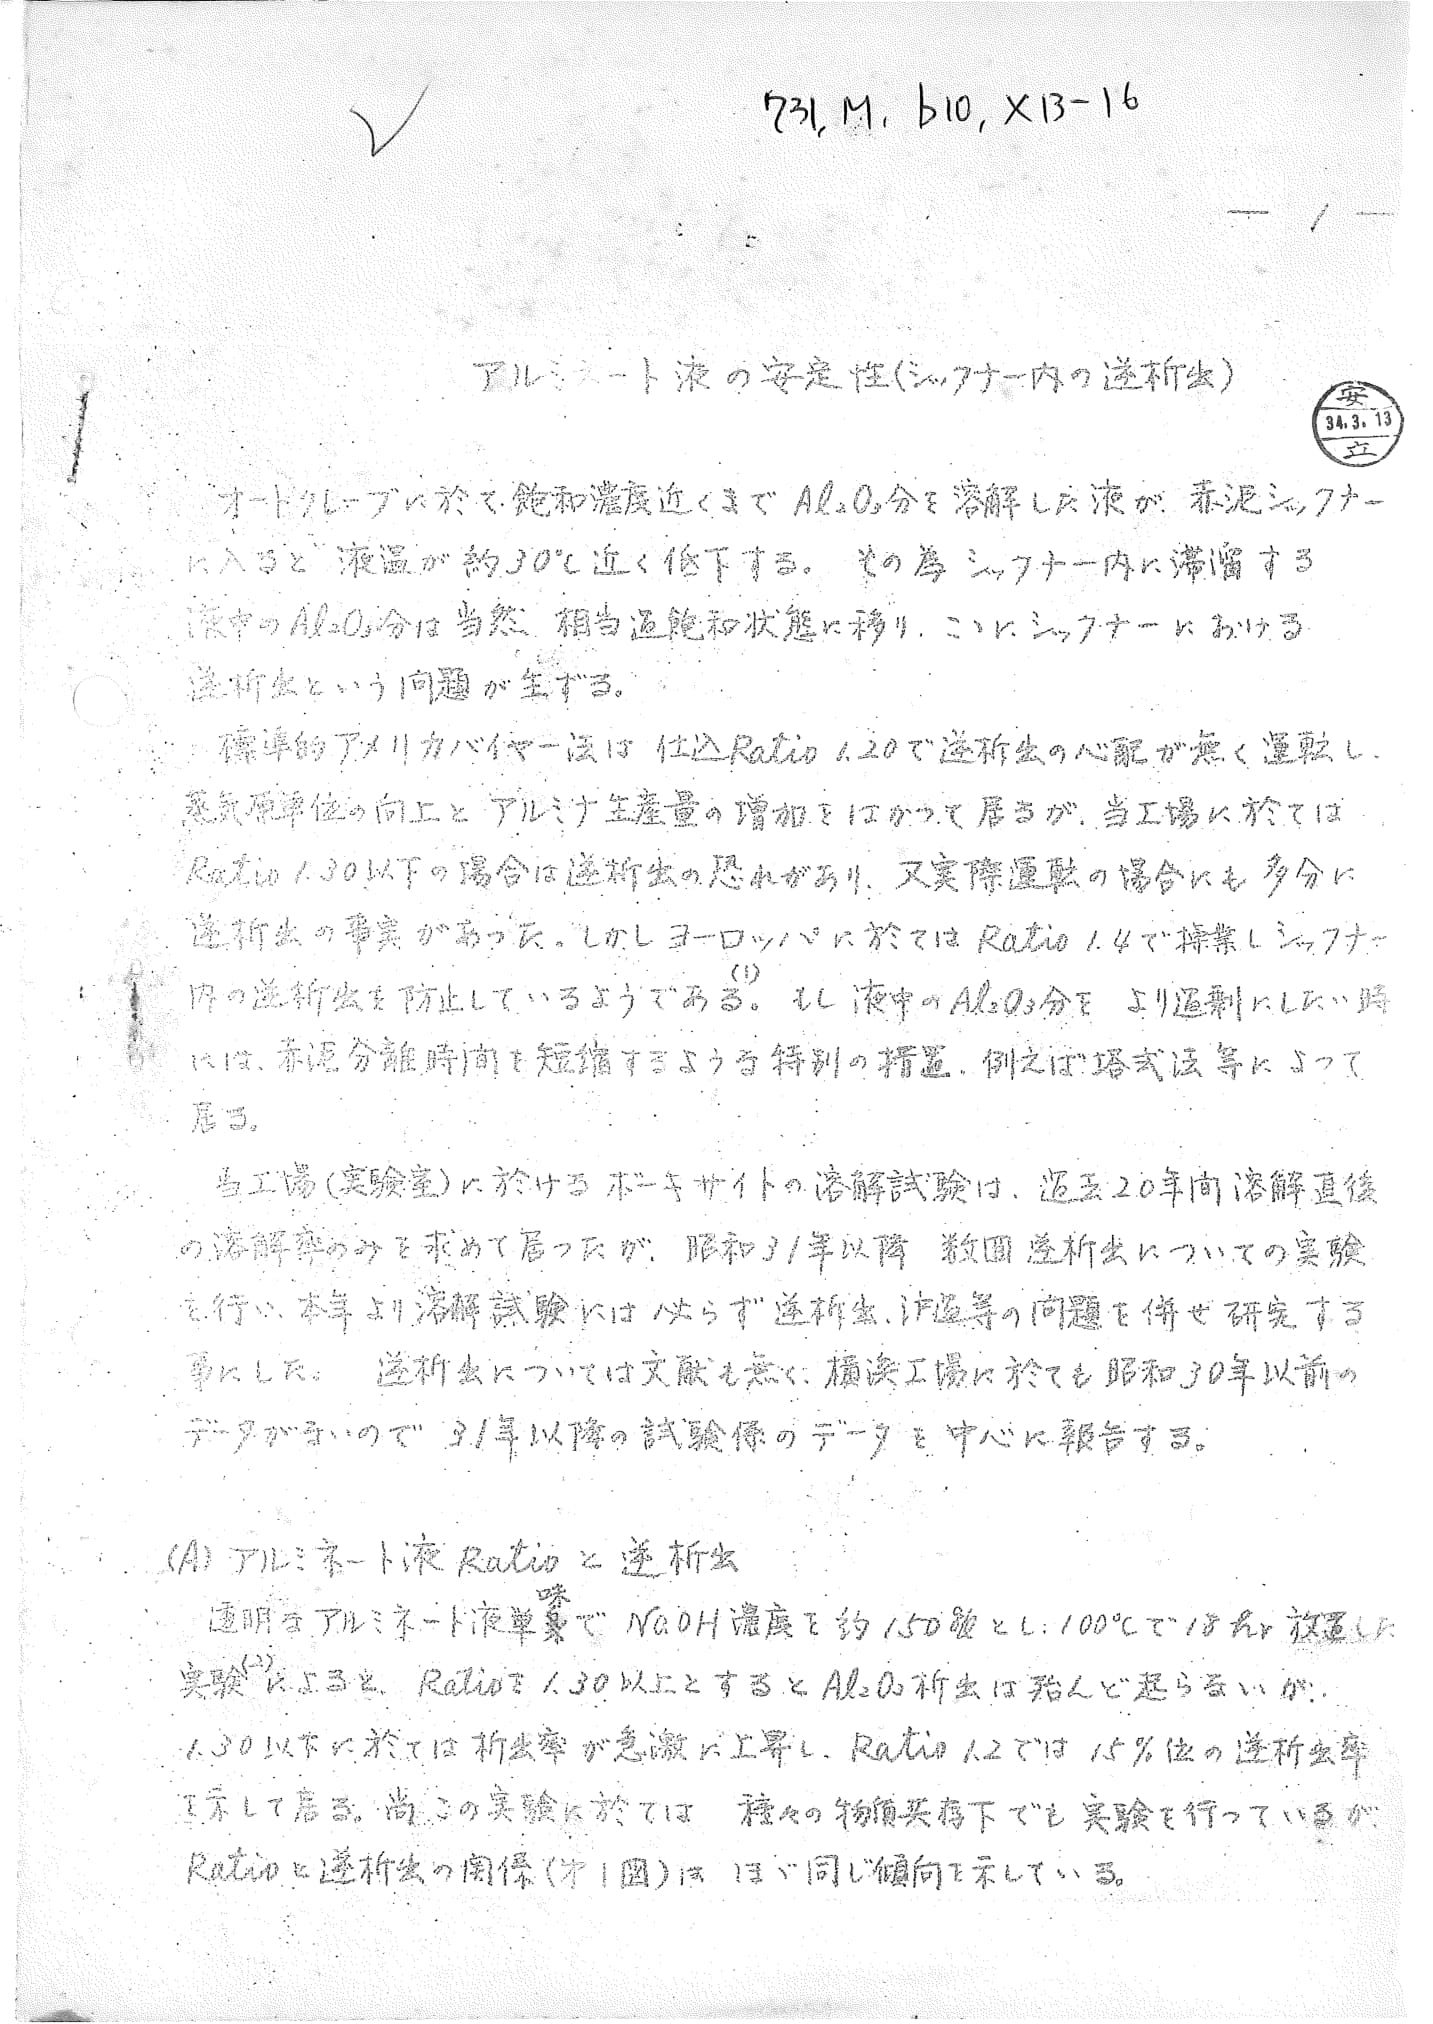 731, M. b10, X13-16
— 1 —
アルミネート液の安定性(シックナー内の逆析出)
安
34.3.13
立
オートクレーブに於て飽和濃度近くまでAl₂O₃分を溶解した液が、赤泥シックナー
に入ると液温が約30℃近く低下する。その為シックナー内に滞溜する
液中のAl₂O₃分は当然、相当過飽和状態に移り、こゝにシックナーにおける
逆析出という問題が生ずる。
標準的アメリカバイヤー法は仕込Ratio 1.20で逆析出の心配が無く運転し、
蒸気原単位の向上とアルミナ生産量の増加をはかって居るが、当工場に於ては
Ratio 1.30以下の場合は逆析出の恐れがあり、又実際運転の場合にも多分に
逆析出の事実があった。しかしヨーロッパに於てはRatio 1.4で操業しシックナー
内の逆析出を防止しているようである(1)。もし液中のAl₂O₃分をより過剰にしたい時
には、赤泥分離時間を短縮するような特別の措置、例えば塔式法等によって
居る。
当工場(実験室)に於けるボーキサイトの溶解試験は、過去20年間溶解直後
の溶解率のみを求めて居ったが、昭和31年以降数回逆析出についての実験
を行い、本年より溶解試験には必らず逆析出、沪過等の問題を併せ研究する
事にした。逆析出については文献も無く、横浜工場に於ても昭和30年以前の
データがないので31年以降の試験係のデータを中心に報告する。
(A) アルミネート液Ratioと逆析出
透明なアルミネート液単味でNaOH濃度を約150g/lとし、100℃で18hr放置した
実験(2)によると、Ratioを1.30以上とするとAl₂O₃析出は殆んど起らないが、
1.30以下に於ては析出率が急激に上昇し、Ratio 1.2では15%位の逆析出率
を示して居る。尚この実験に於ては種々の物質共存下でも実験を行っているが
Ratioと逆析出の関係(才1図)はほゞ同じ傾向を示している。